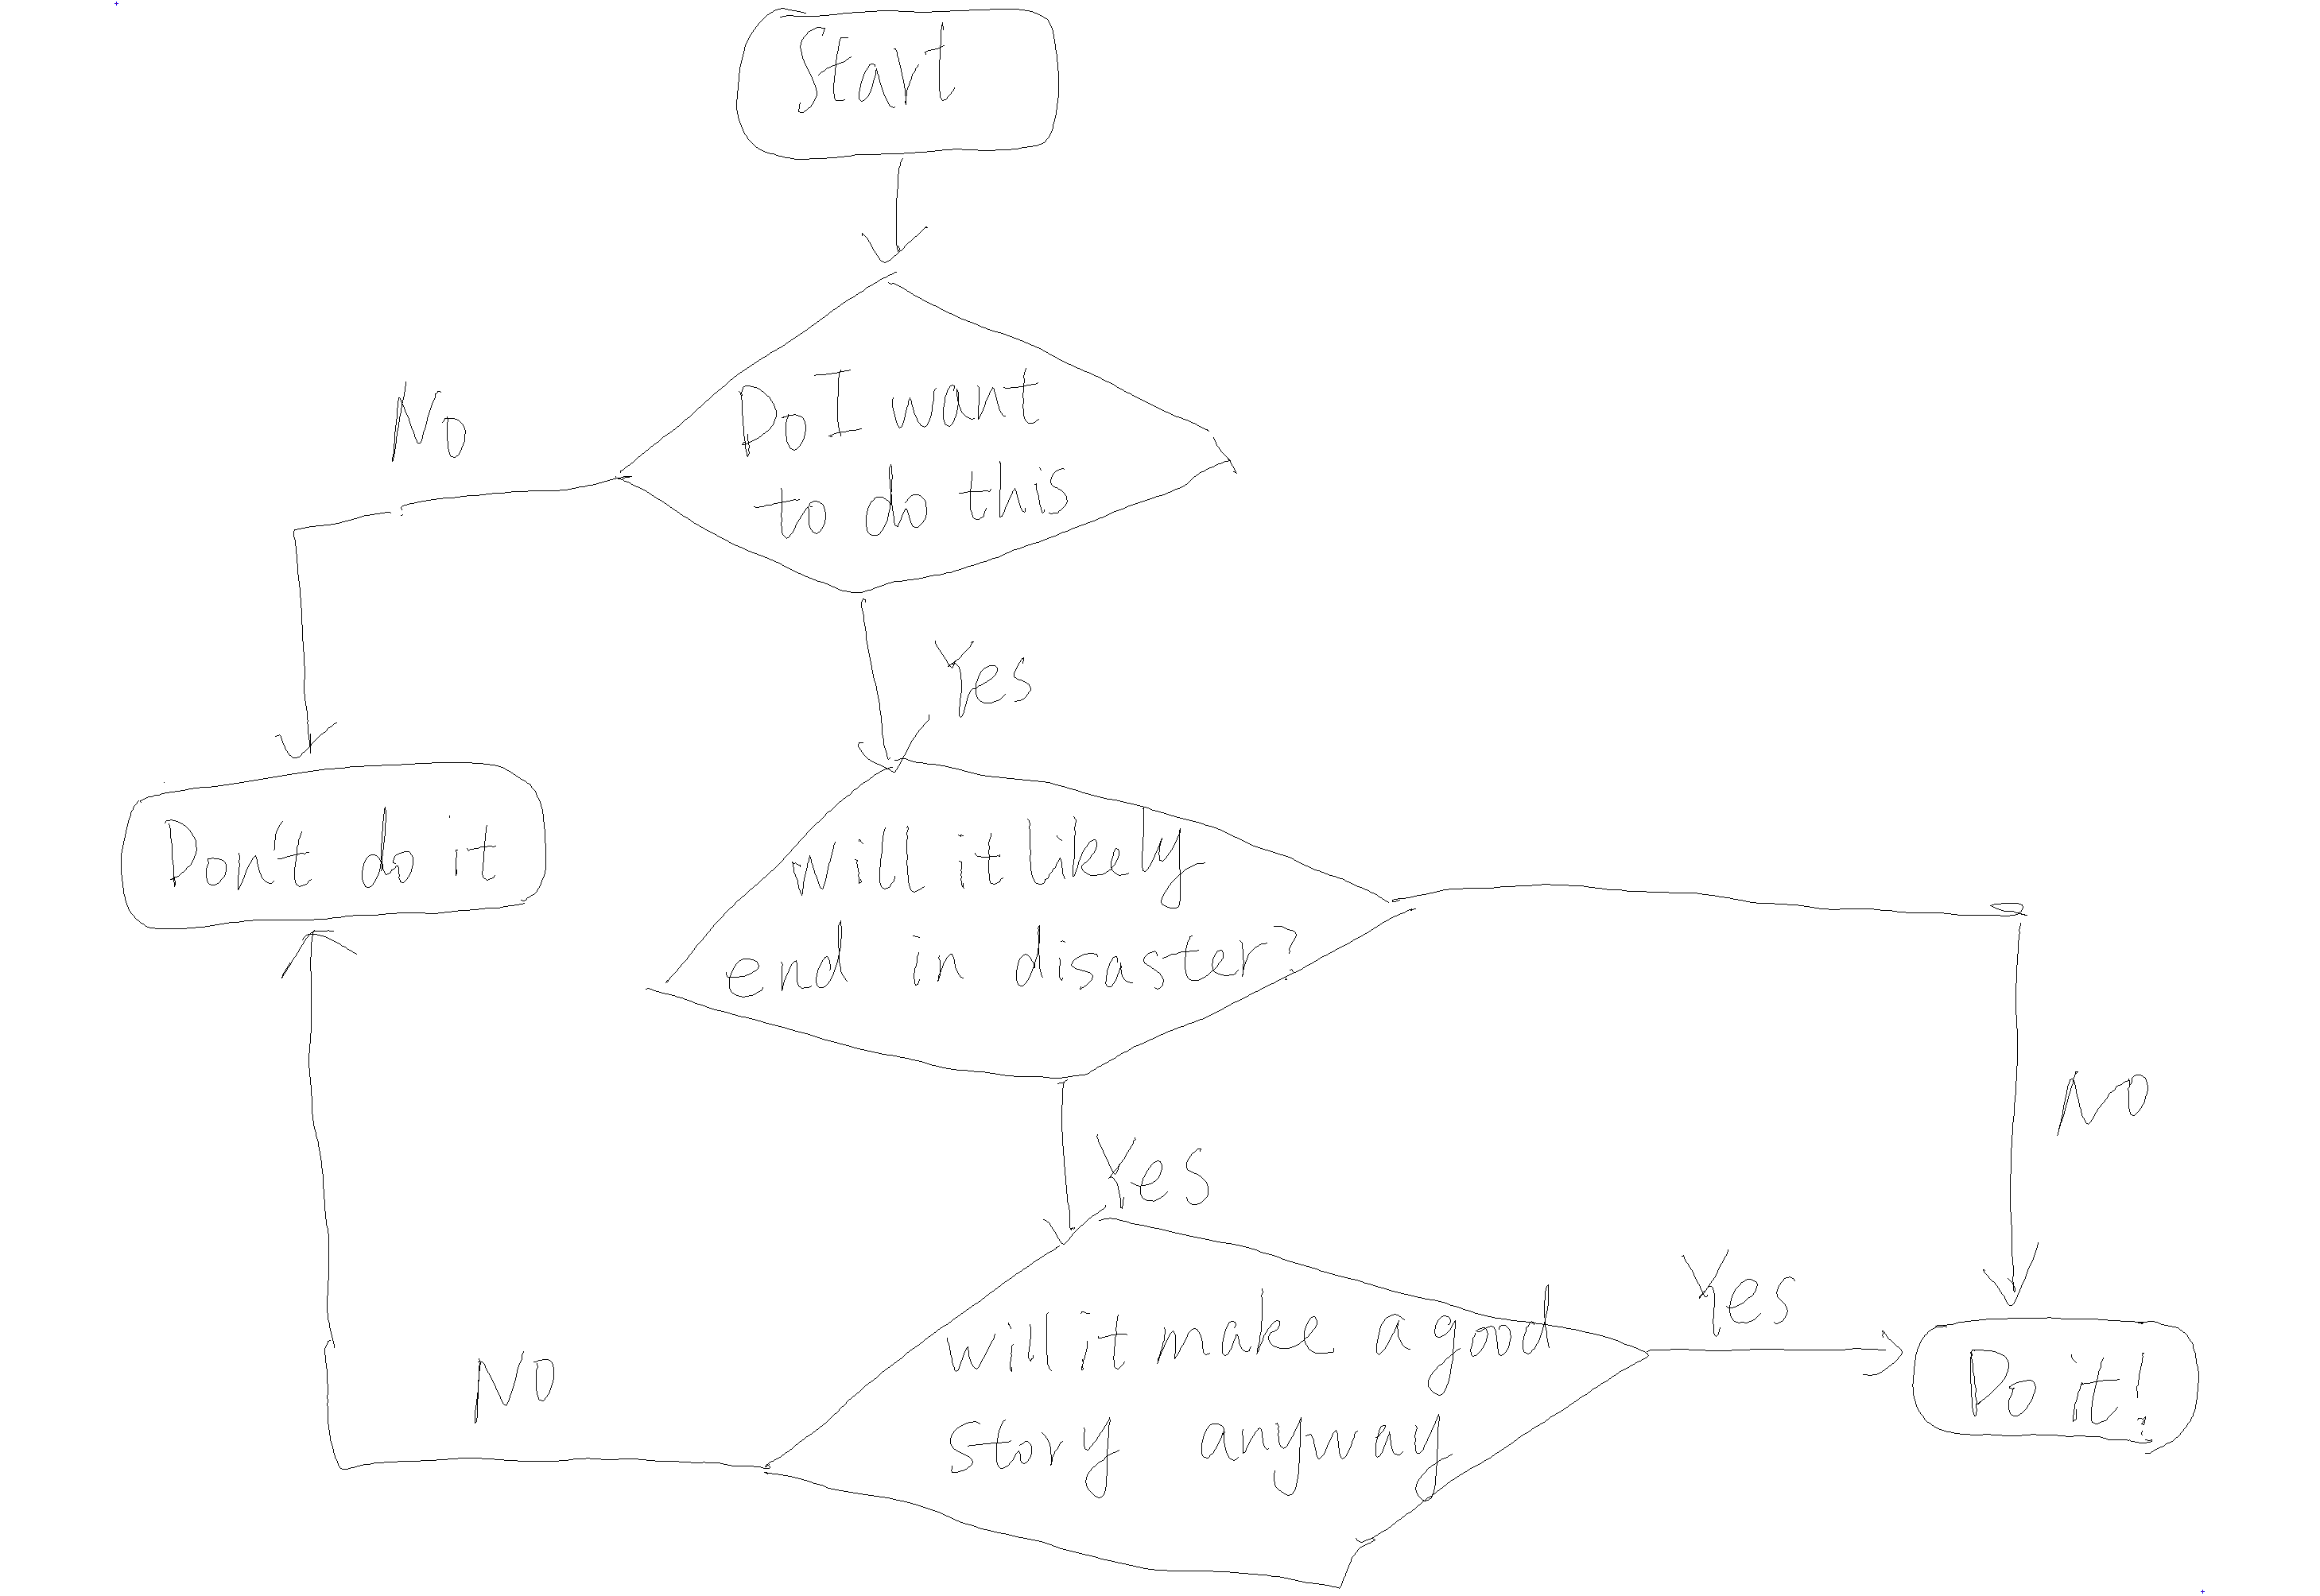 Start
No
Do I want
to do this
Yes
Don't do it
will it likely
end in disaster?
No
Yes
Yes
will it make a good
story anyway
No
Do it!